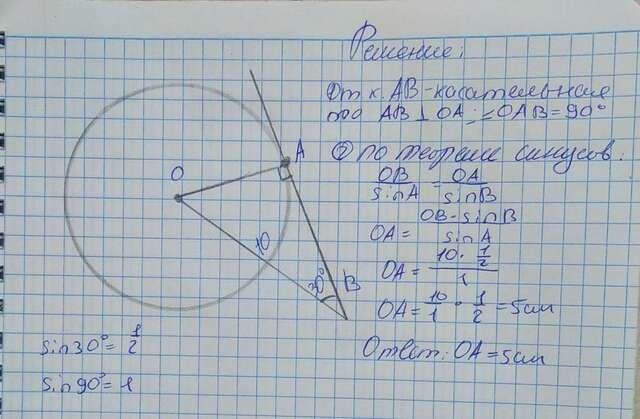 Решение:
От к. AB - касательная
то AB ⊥ OA ; ∠OAB = 90°
② по теореме синусов.
OB/sinA = OA/sinB
OA = OB · sinB / sinA
OA = 10 · 1/2 / 1
OA = 10/1 · 1/2 = 5см
Ответ: OA = 5см
O
A
10
30°
B
sin30° = 1/2
sin90° = 1